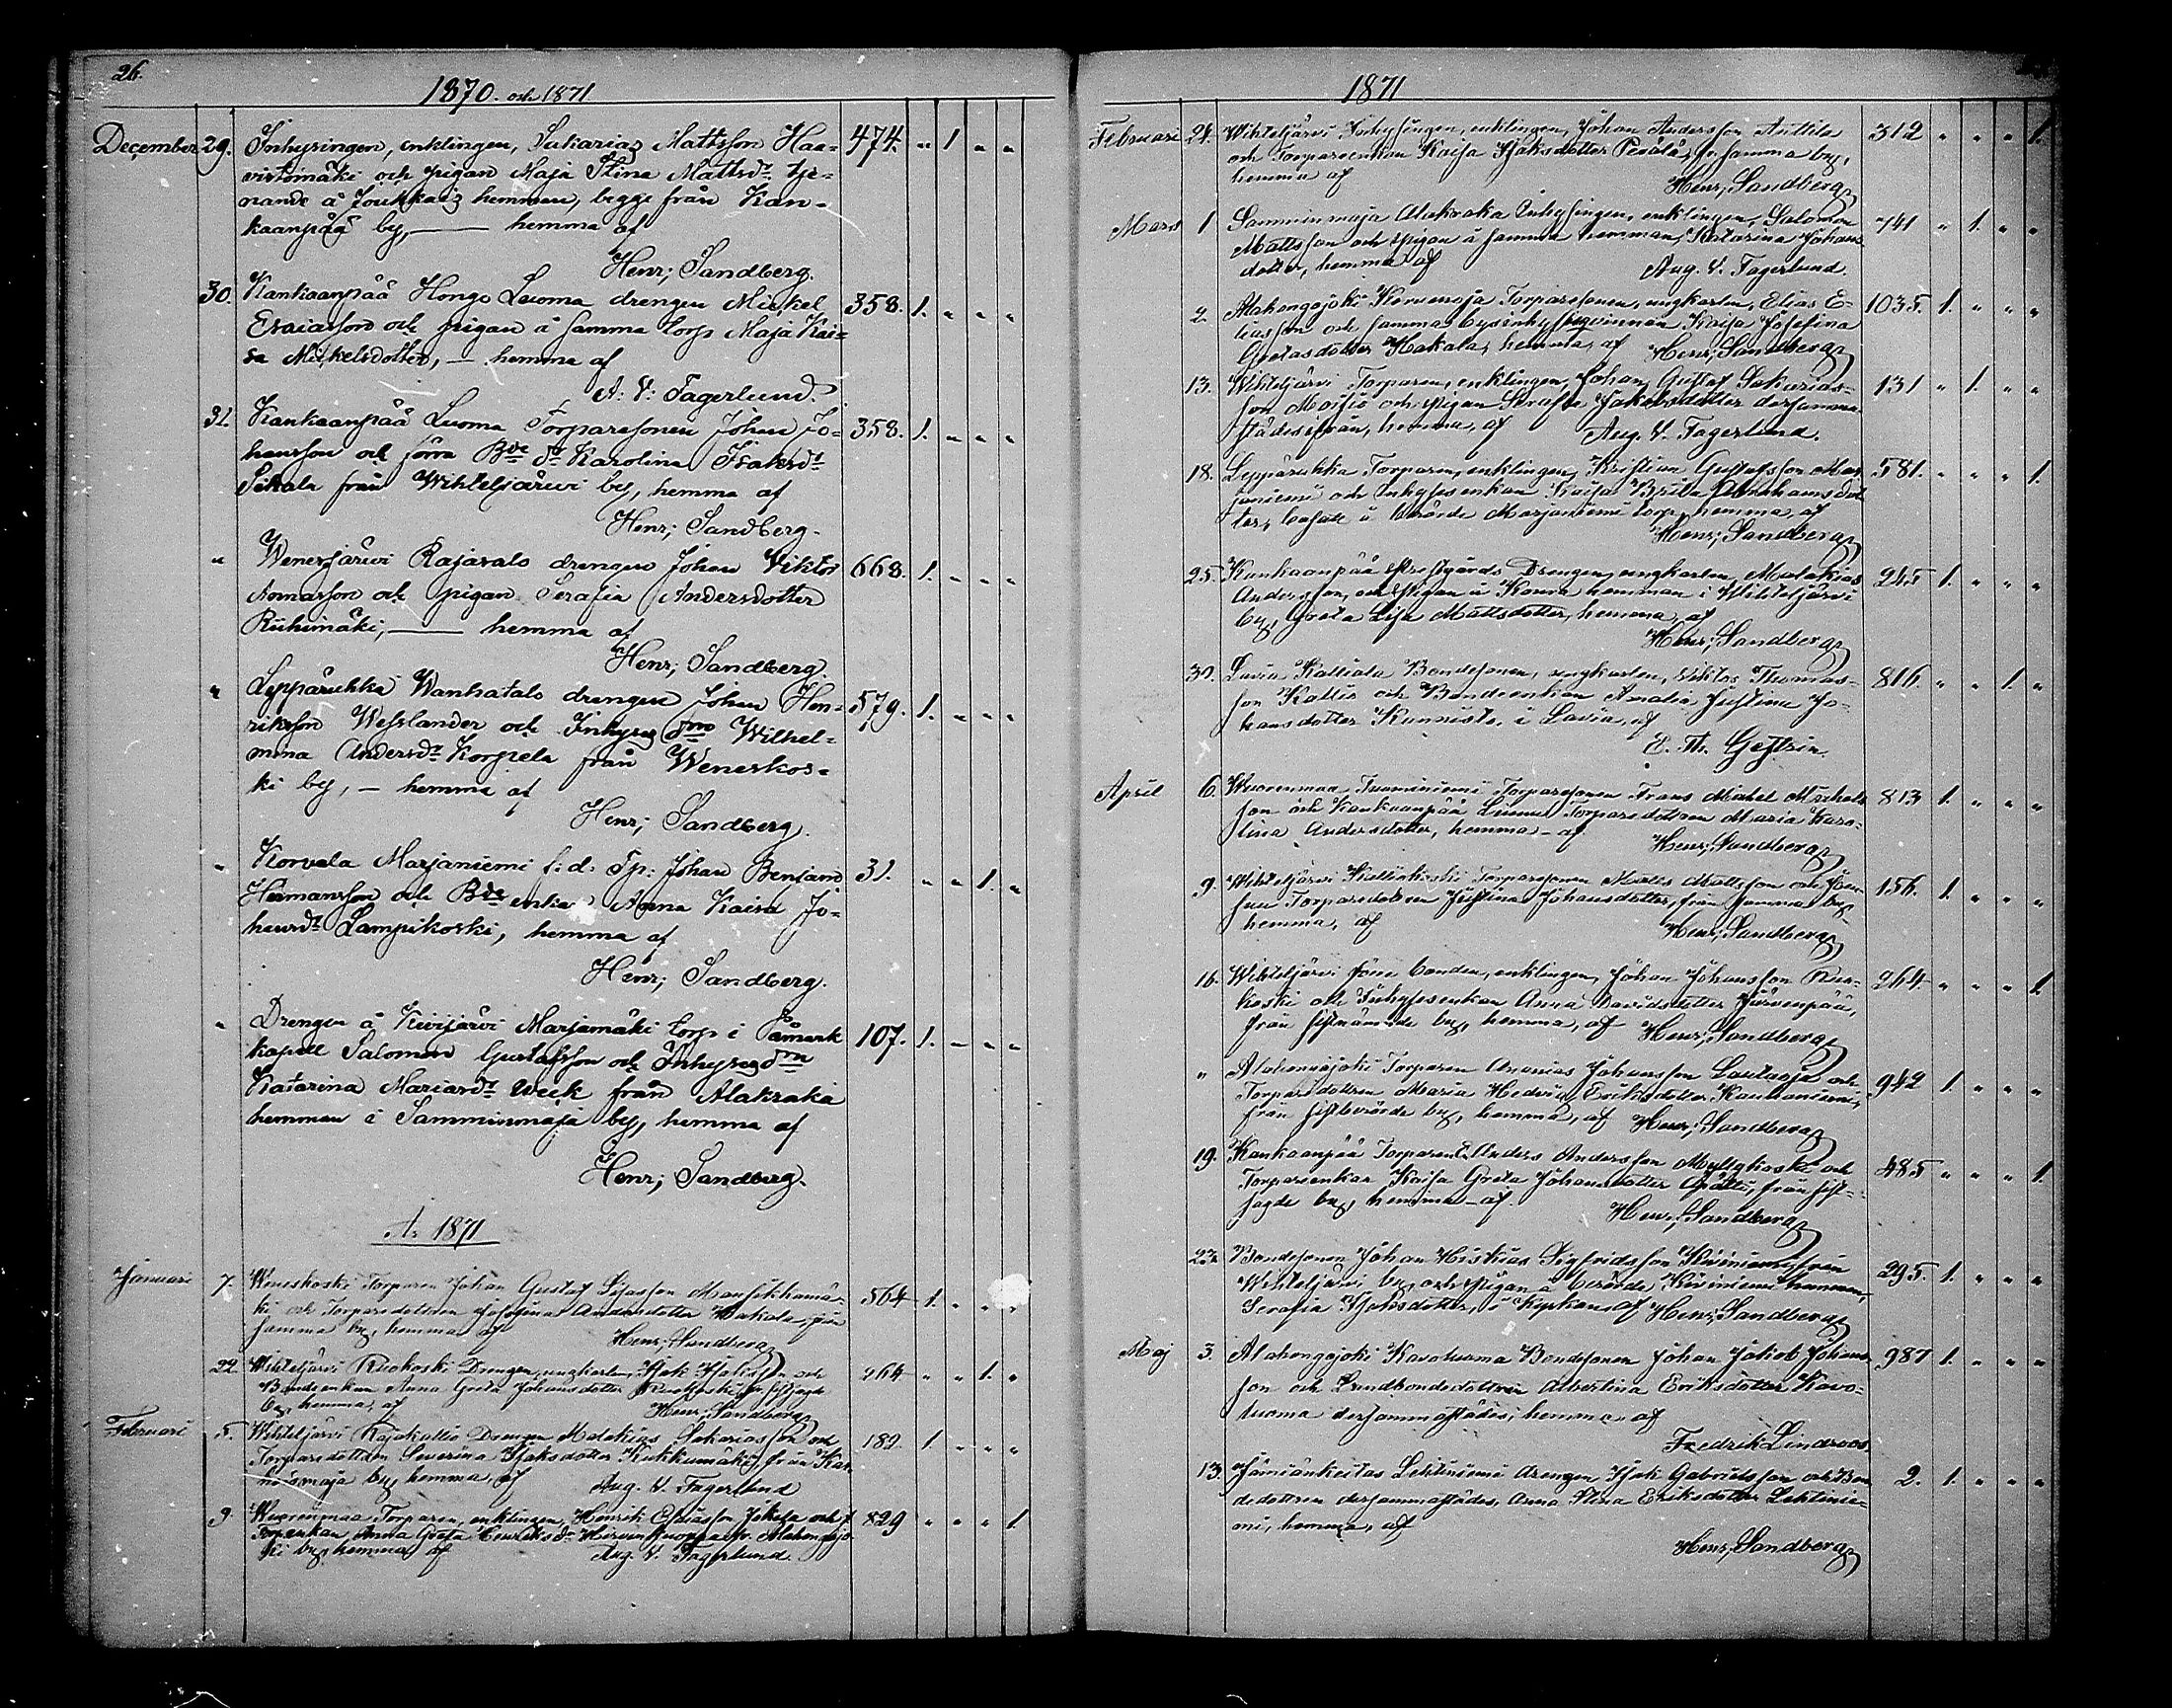 26.
1870. och 1871
December 29. Inhysingen, enklingen, Sakarias Mattsson Haa- 474. " 1 " "
vistomäki och pigan Maja Stina Mattsdr tje-
nande å Joukkais hemman, begge från Kan-
kaanpää by, — hemma af
Henr; Sandberg.
30. Kankaanpää Hongo Luoma drengen Mickel 358. 1. " " "
Esaiasson och pigan å samma torp Maja Kai-
sa Mickelsdotter, — hemma af
A. V. Fagerlund.
31. Kankaanpää Luoma Torparesonen Johan Jo- 358. 1. " " "
hansson och förra Bde dr Karolina Isaksdr
Sikala från Wihteljärwi by, hemma af
Henr; Sandberg.
" Wenesjärwi Rajasalo drengen Johan Viktor 668. 1. " " "
Aomasson och pigan Serafia Andersdotter
Riihimäki, — hemma af
Henr; Sandberg.
" Leppäruhka Wanhatalo drengen Johan Hen- 579. 1. " " "
riksson Wesslander och Inhyses dtro Wilhel-
mina Andersdr Korpela från Weneskos-
ki by, — hemma af
Henr; Sandberg.
" Korvala Marjaniemi f. d. Tp. Johan Benjam. 31. " " 1. "
Hermansson och Bde enkan Anna Kaisa Jo-
hansdr Lampikoski, hemma af
Henr; Sandberg.
" Drengen å Kivijärvi Marjamäki torp i Jämiark 107. 1. " " "
kapell Salomon Gustafsson och Inhyses dtrn
Katarina Mariasdr Week från Alakraka
hemman i Samminmaja by, hemma af
Henr; Sandberg.
År 1871
Januari 7. Weneskoski Torparen Johan Gustaf Lisasson Mansikkamä- 564 1. " " "
ki och Torparedottren Josefina Andersdotter Hakala, från
samma by, hemma af
Henr; Sandberg
22. Wihteljärvi Ruokoski Drengen, ungkarlen, Isak Isaksson och 264 " " 1. "
Bondeenkan Anna Greta Johansdotter Ruokoski fr. sistsagde
by, hemma, af Henr; Sandberg
Februari 5. Wihteljärvi Rajakallio Drengen Malakias Sakariasson och 189. 1. " " "
Torparedottren Severina Isaksdotter Kukkumäki, från Kar-
by, hemma, af Aug. V. Fagerlund
9. Wuorenmaa Torparen, enklingen, Henrik Eliasson Jokela och f. 829 " " " 1.
Torpenkan Anna Greta Henriksdr fr. Alahongojo-
ki by, hemma af Aug. V. Fagerlund.
1871
Februari 24. Wihteljärvi Inhysingen, enklingen, Johan Andersson Anttila 312 " " " 1.
och Torpareenkan Kaisa Isaksdotter Perälä, fr. samma by,
hemma af Henr; Sandberg
Mars 1 Samminmaja Alakraka Inhysingen, enklingen, Salomon 741 " 1. " "
Mattsson och pigan å samma hemman, Katarina Johans-
dotter, hemma af Aug. V. Fagerlund.
2. Alahongojoki Torparesonen, ungkarlen, Elias E- 1035. 1. " " "
liasson och samma bys inhysesqvinnan Kaisa Josefina
Gretasdotter Hakala, hemma, af Henr; Sandberg
13. Wihteljärvi Torparen, enklingen, Johan Gustaf Sakarias- 131 " 1. " "
son Moisio och pigan Serafia Jakobsdotter dersamma-
städesifrån, hemma, af Aug. V. Fagerlund.
18. Leppäruhka Torparen, enklingen, Kristian Gustafsson Mar- 581. " " " 1.
janiemi och Inhysesenkan Kaisa Brita Abrahamsdot-
ter, bosatt å berörde Marjaniemi torp, hemma, af
Henr; Sandberg
25. Kankaanpää Prestgårds Drengen, ungkarlen, Malakias 245 1. " " "
Andersson, och Pigan å Koura hemman i Wihteljärvi
by, Greta Lisa Mattsdotter, hemma, af
Henr; Sandberg
30. Lavia Kalliala Bondesonen, ungkarlen, Viktor Thomas- 816. " " 1. "
son Kallio och Bondeenkan Amalia Justina Jo-
hansdotter Kunnisto, i Lavia, af
E. Th. Gestrin.
April 6. Wuorenmaa Tuuminiemi Torparesonen Frans Mickel Mickels- 813 1. " " "
son och Kankaanpää Luoma Torparedottren Maria Karo-
lina Andersdotter, hemma - af Henr; Sandberg
9. Wihteljärvi Kalliokoski Torparesonen Matts Mattsson och
Torparedottren Justina Johansdotter, från samma by 156. 1. " " "
hemma, af Henr; Sandberg
16. Wihteljärvi förre bonden, enklingen, Johan Johansson Ruo- 264 " " " 1
koski och Inhysesenkan Anna Davidsdotter Järvenpää,
från sistnämnde by, hemma, af Henr; Sandberg
" Alahongojoki Torparen Ananias Johansson Lautaoja och 942 1. " " "
Torparedottren Maria Hedvig Eriksdotter Kauhaniemi,
från sistberörde by, hemma, af Henr; Sandberg
19. Kankaanpää Torparen Anders Andersson Myllykoski och 485 " " " 1
Torpareenkan Kaisa Greta Johansdotter Pätti, från sist-
sagde by, hemma - af. Henr; Sandberg
23. Bondesonen Johan Hiskias Sigfridsson Kiviniemi från 295. 1. " " "
Wihteljärvi by, och pigan å berörde Kiviniemi hemman,
Serafia Isaksdotter, i kyrkan, af Henr; Sandberg
Maj 3. Alahongojoki Kavoluoma Bondesonen Johan Jakob Johans- 987 1. " " "
son och Landbondedottren Albertina Eriksdotter Kavo-
luoma dersammastädes, hemma af
Fredrik Lindroos.
13. Jämiänkeitas Lehtiniemi drengen Isak Gabrielsson och Bon- 2. 1. " " "
dedottren dersammastädes, Anna Stina Eriksdotter Lehtinie-
mi, hemma, af
Henr; Sandberg